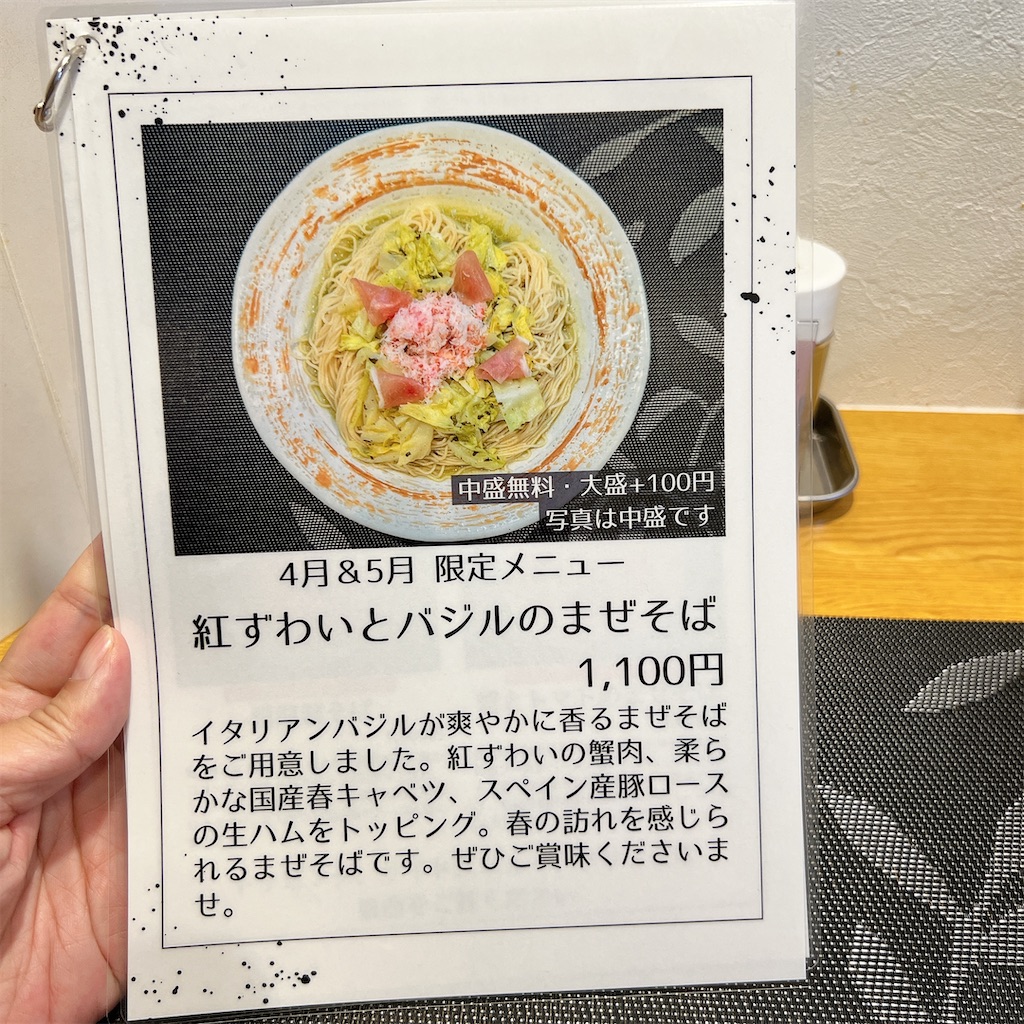 中盛無料・大盛+100円
写真は中盛です
4月&5月 限定メニュー
紅ずわいとバジルのまぜそば
1,100円
イタリアンバジルが爽やかに香るまぜそば
をご用意しました。紅ずわいの蟹肉、柔ら
かな国産春キャベツ、スペイン産豚ロース
の生ハムをトッピング。春の訪れを感じら
れるまぜそばです。ぜひご賞味くださいま
せ。